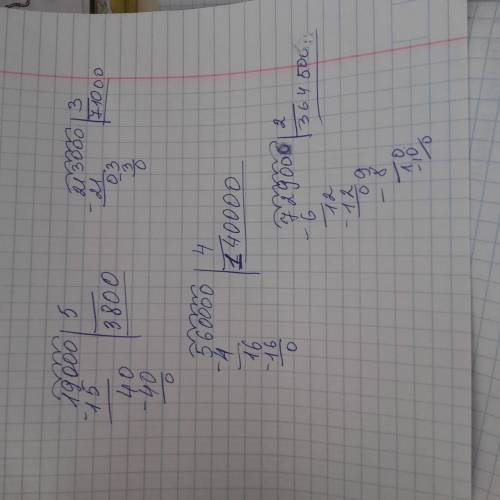 19000 5
-15 3800
40
-40
0
213000 3
-21 71000
03
-3
0
560000 4
-4 140000
16
-16
0
729000 2
-6 364500
12
-12
09
-8
10
-10
0